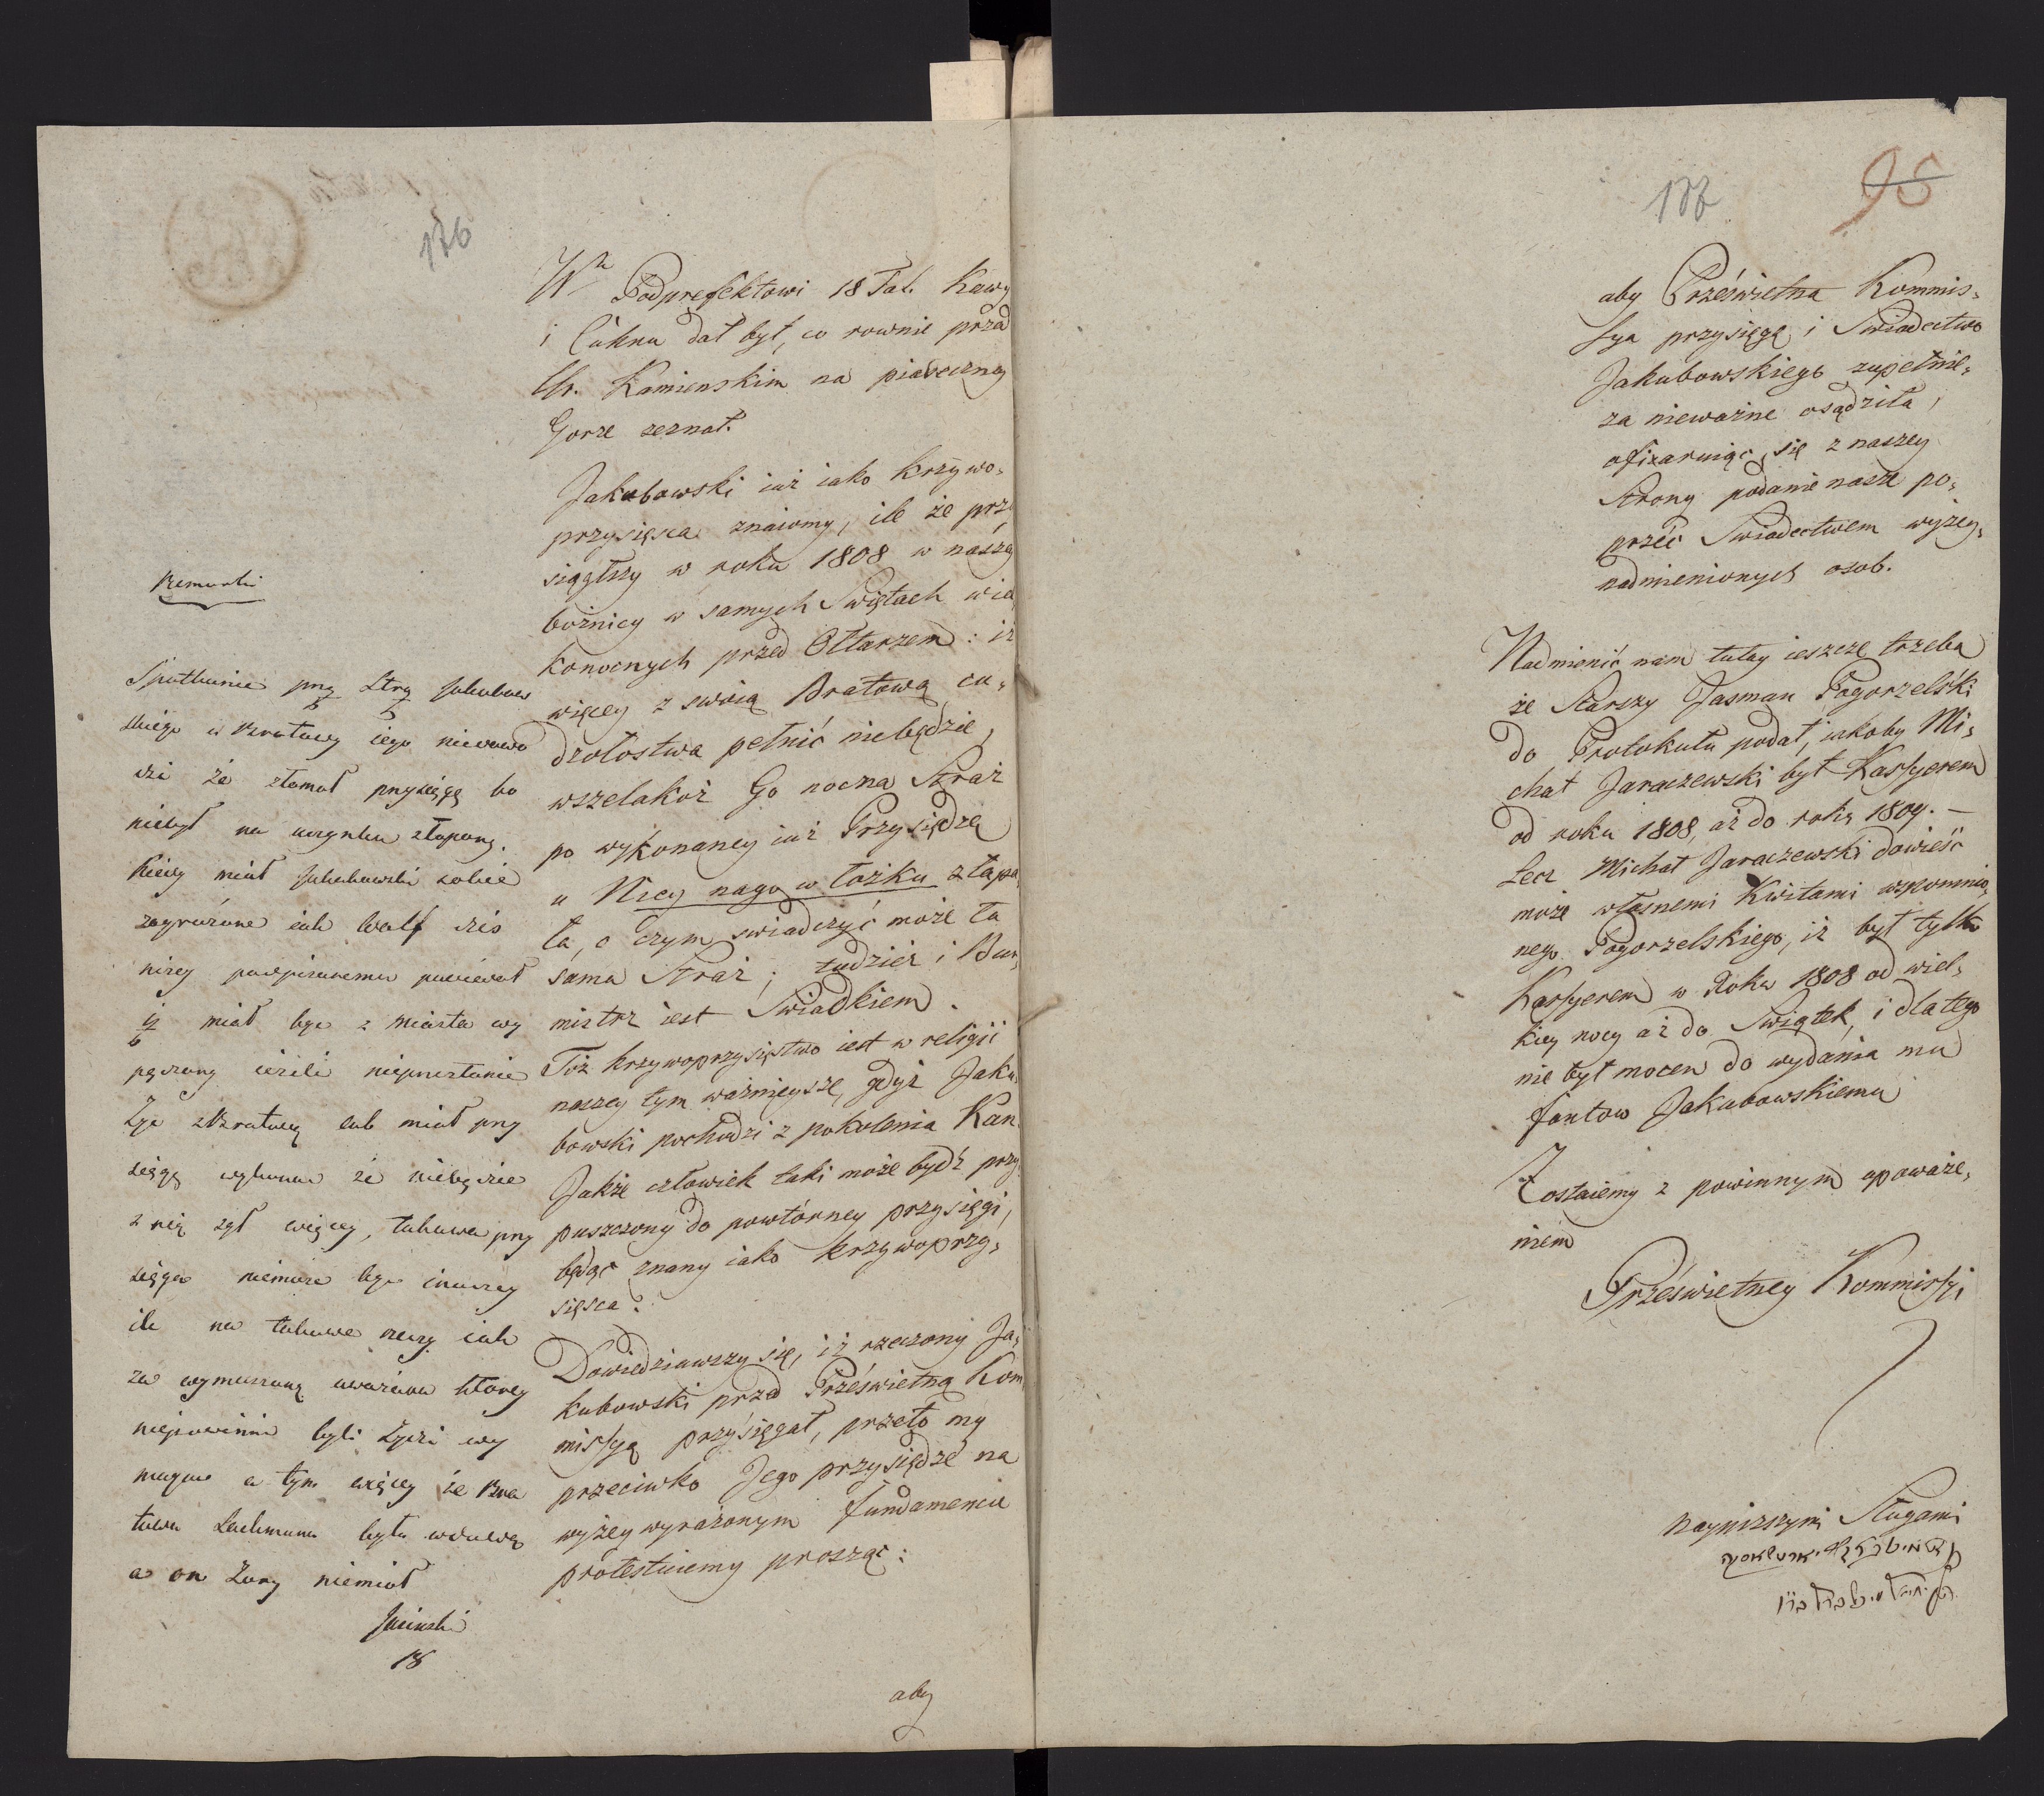 176
W<sup>u</sup> Podprefektowi 18 Tal. Kawy
i Cukru dał był, co rownie przed
Ur. Kamienskim na piaseczney
Gorze zeznał.
Jakubowski iuż iako krzywo-
przysięsca znaiomy, ile że przy
siągłszy w roku 1808 w naszey
bożnicy w samych Swiętach wiel
konocnych przed Ołtarzem: iż
więcey z swoią Bratową cu-
dzołostwa pełnić niebędzie,
wszelakoż Go nocna Straż
po wykonaney iuż Przysiędze
u Niey nago w łożku złapa
ła, o czym swiadczyć może ta
sama Straż; tudzież i Bur
mistrz iest Swiadkiem.
Toż krzywoprzysięstwo iest w religii
naszey tym ważnieysze, gdyż Jaku
bowski pochodzi z pokolenia Kan.
Jakże człowiek taki może bydź przy
puszczony do powtórney przysięgi,
będąc znany iako krzywoprzy-
sięsca?
Dowiedziawszy się, iż rzeczony Ja-
kubowski przed Prześwietną Kom
missyą przysięgał, przeto my
przeciwko Jego przysiędze na
wyżey wyrażonym fundamencie
protestuiemy prosząc:
aby
Remarki
Spotkanie przy Jakubow
skiego u Bratowy iego niedowo
dzi że złamał przysięgę bo
niebył na uczynku złapany.
Kiedy miał Jakubowski sobie
zagrożone iak Wolf
niżey podpisanemu powiedał
iż miał być z miasta wy
pędzony ieżeli nieprzestanie
żyć z Bratową lub miał przy
sięgę wykonać że niebędzie
z nią żył więcey, takowa przy
sięga niemoże być inaczey
ile na takowe rzeczy iak
za wymuszoną uważana ktorey
niepowinni byli Żydzi wy
magać a tym więcey że Bra
towa Lachmana była wdową
a on Żony niemiał
Jasinski
18
177
95
aby Prześwietna Kommis-
sya przysięgę i Swiadectwo
Jakubowskiego zupełnie
za nieważne osądziła,
ofiaruiąc się z naszey
Strony podanie nasze po-
przeć Swiadectwem wyżey
nadmienionych osob.
Nadmienić nam tutay ieszcze trzeba
że Starszy Jasman Pogorzelski
do Protokułu podał, iakoby Mi-
chał Jaraczewski był Kassyerem
od roku 1808, aż do roku 1809. —
Lecz Michał Jaraczewski dowieść
może własnemi Kwitami wspomnio
nego Pogorzelskiego, iż był tylko
Kassyerem w Roku 1808 od wiel-
kiey nocy aż do Swiątek, i dlatego
nie był mocen do wydania mu
fantow Jakubowskiemu
Zostaiemy z powinnym apoważe-
niem
Prześwietney Kommissyi
nayniższymi Sługami